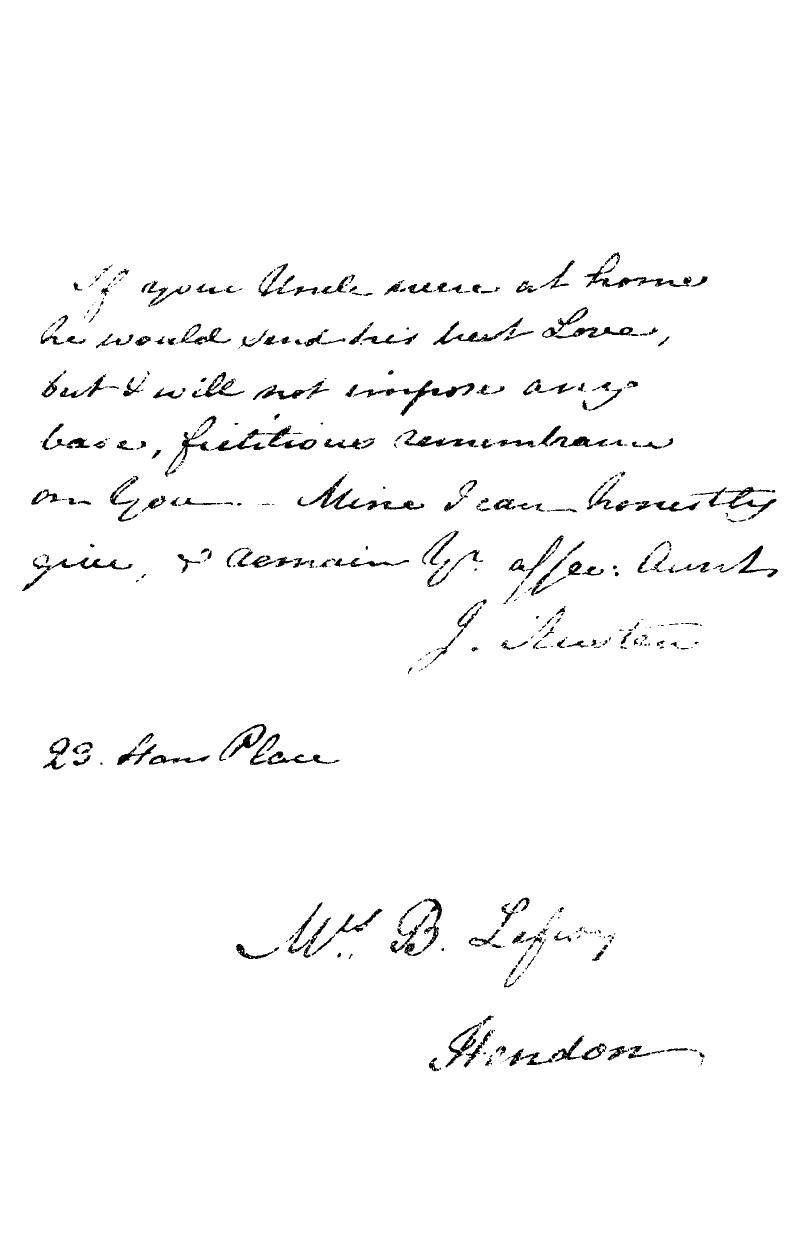 If your Uncle were at home
he would send his best Love,
but I will not impose any
base, fictitious remembrance
on You. - Mine I can honestly
give, & remain Yr. affec: Aunt
J. Austen
23. Hans Place
Mrs. B. Lefroy
Hendon